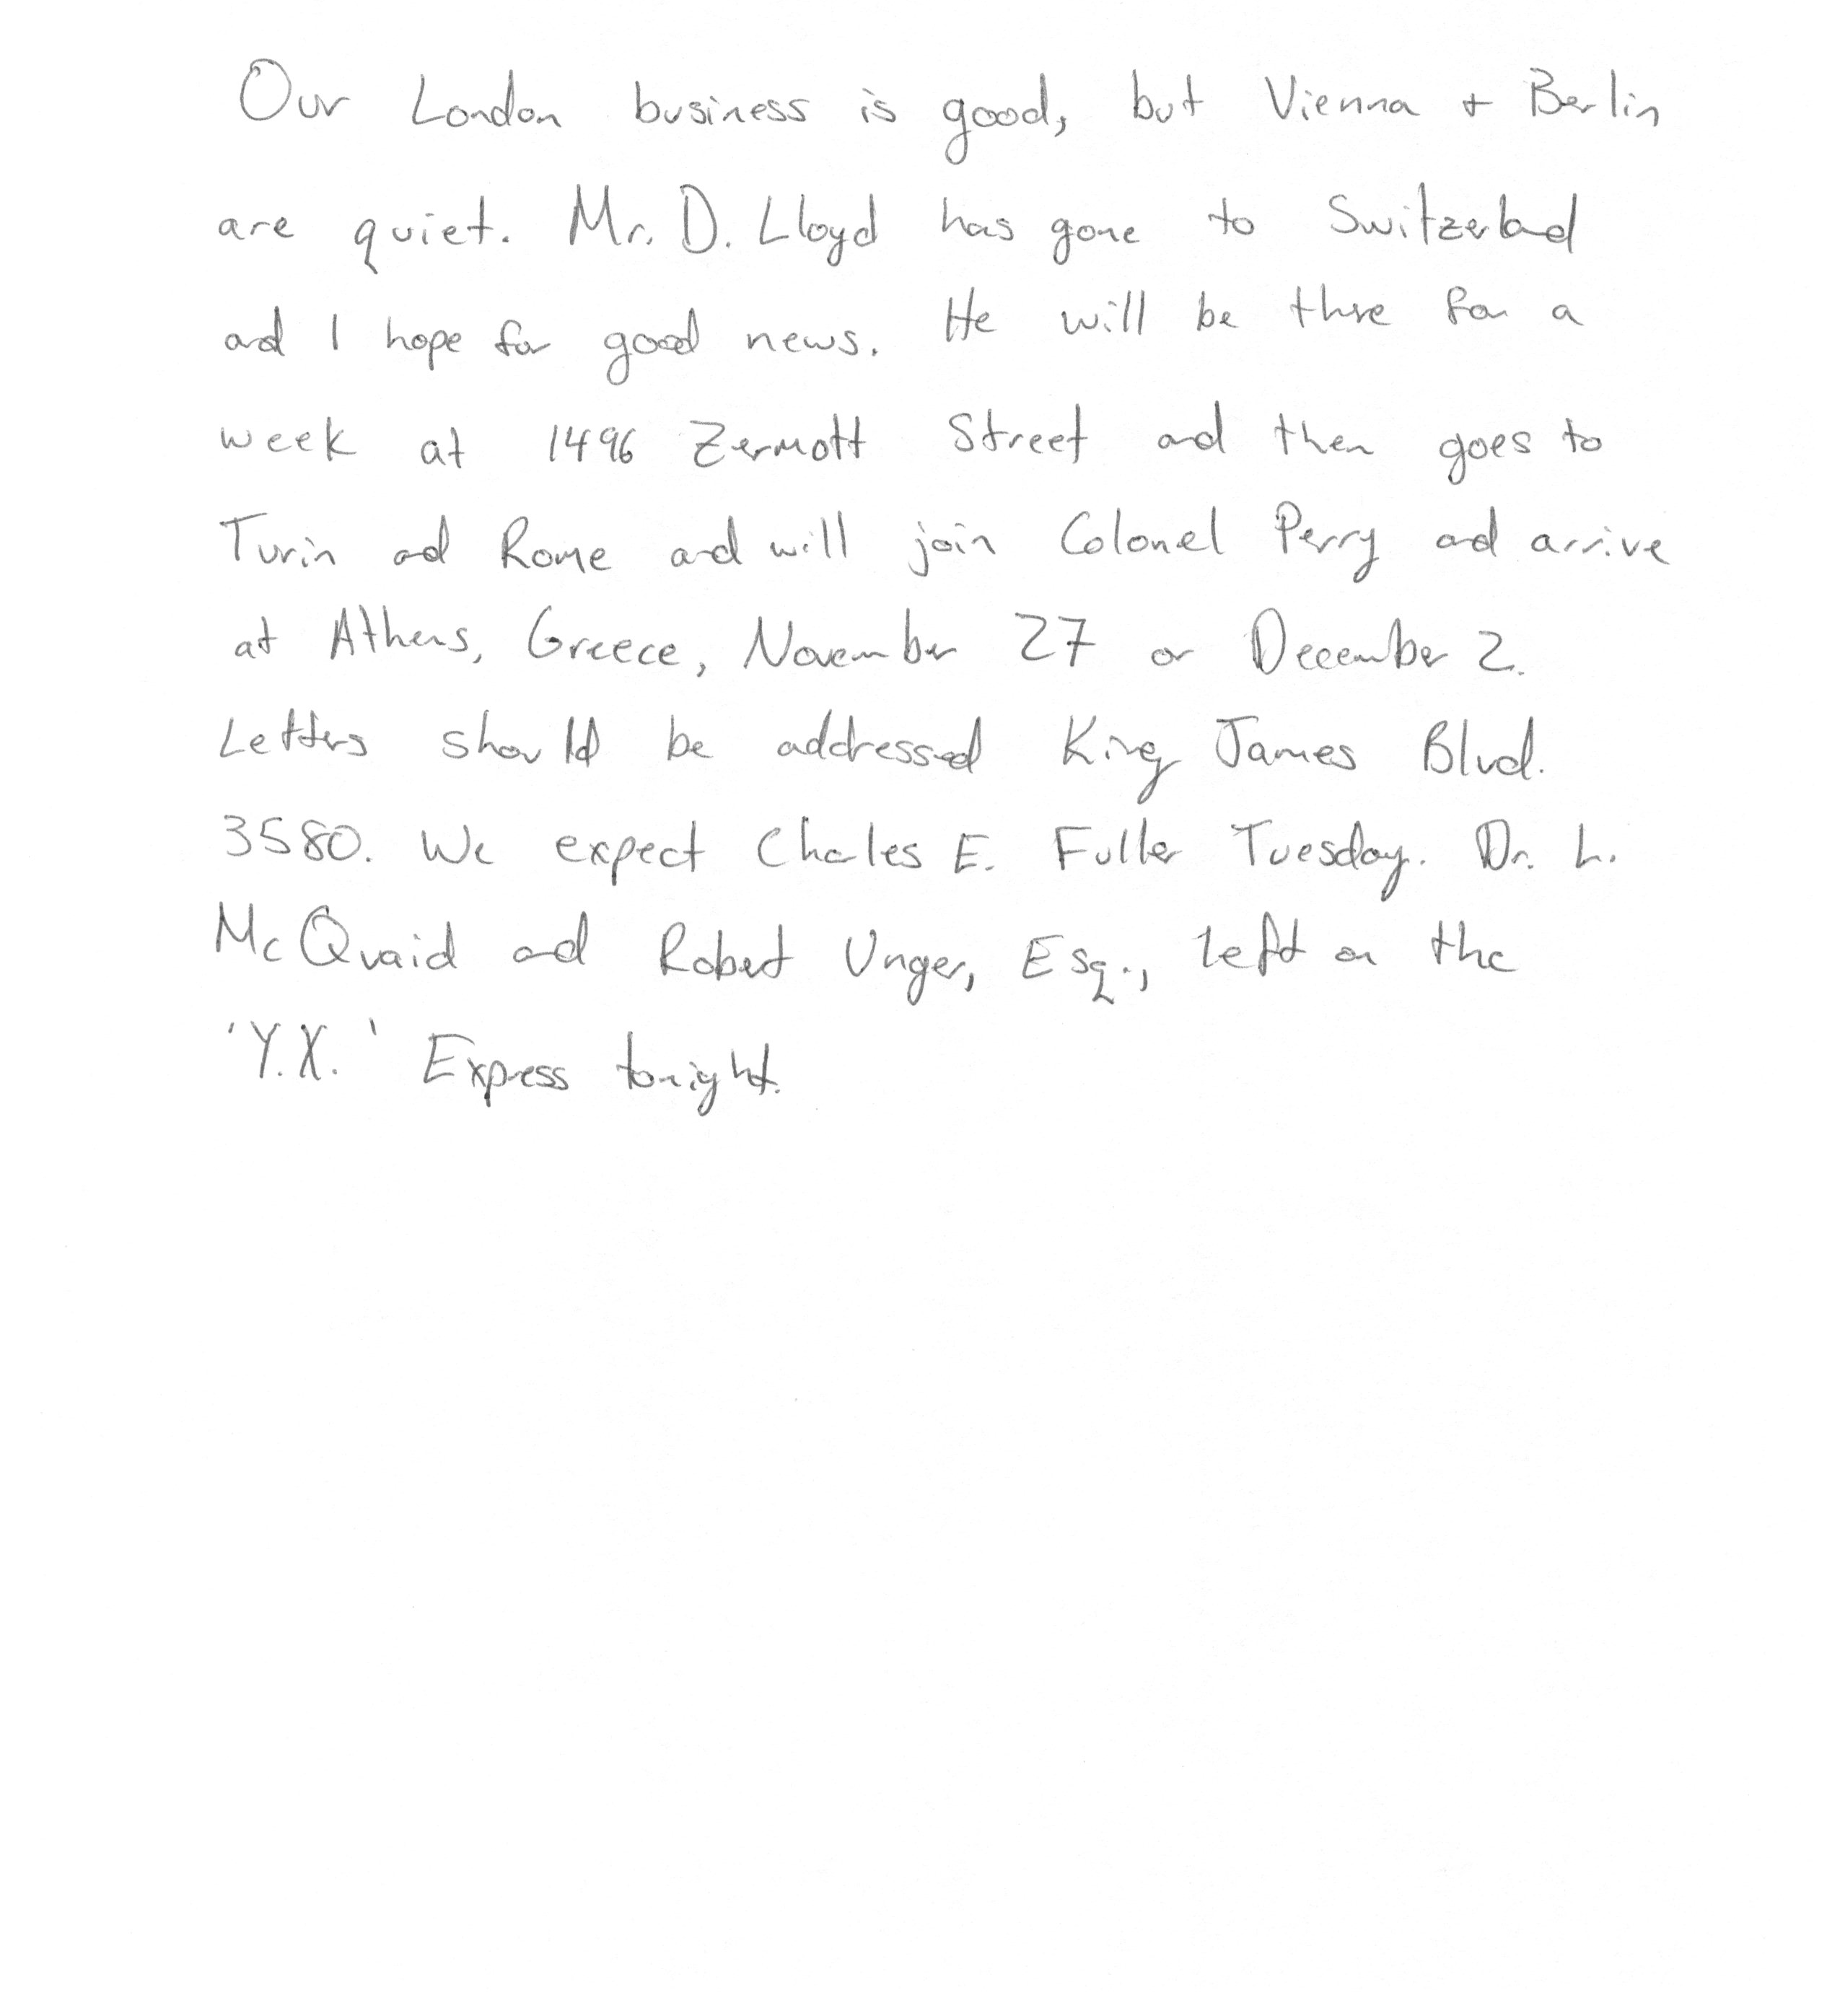 Our London business is good, but Vienna + Berlin
are quiet. Mr. D. Lloyd has gone to Switzerland
and I hope for good news. He will be there for a
week at 1496 Zermott Street and then goes to
Turin and Rome and will join Colonel Perry and arrive
at Athens, Greece, November 27 or December 2.
Letters should be addressed King James Blvd.
3580. We expect Charles E. Fuller Tuesday. Dr. L.
McQuaid and Robert Unger, Esq., left on the
'Y.X.' Express tonight.